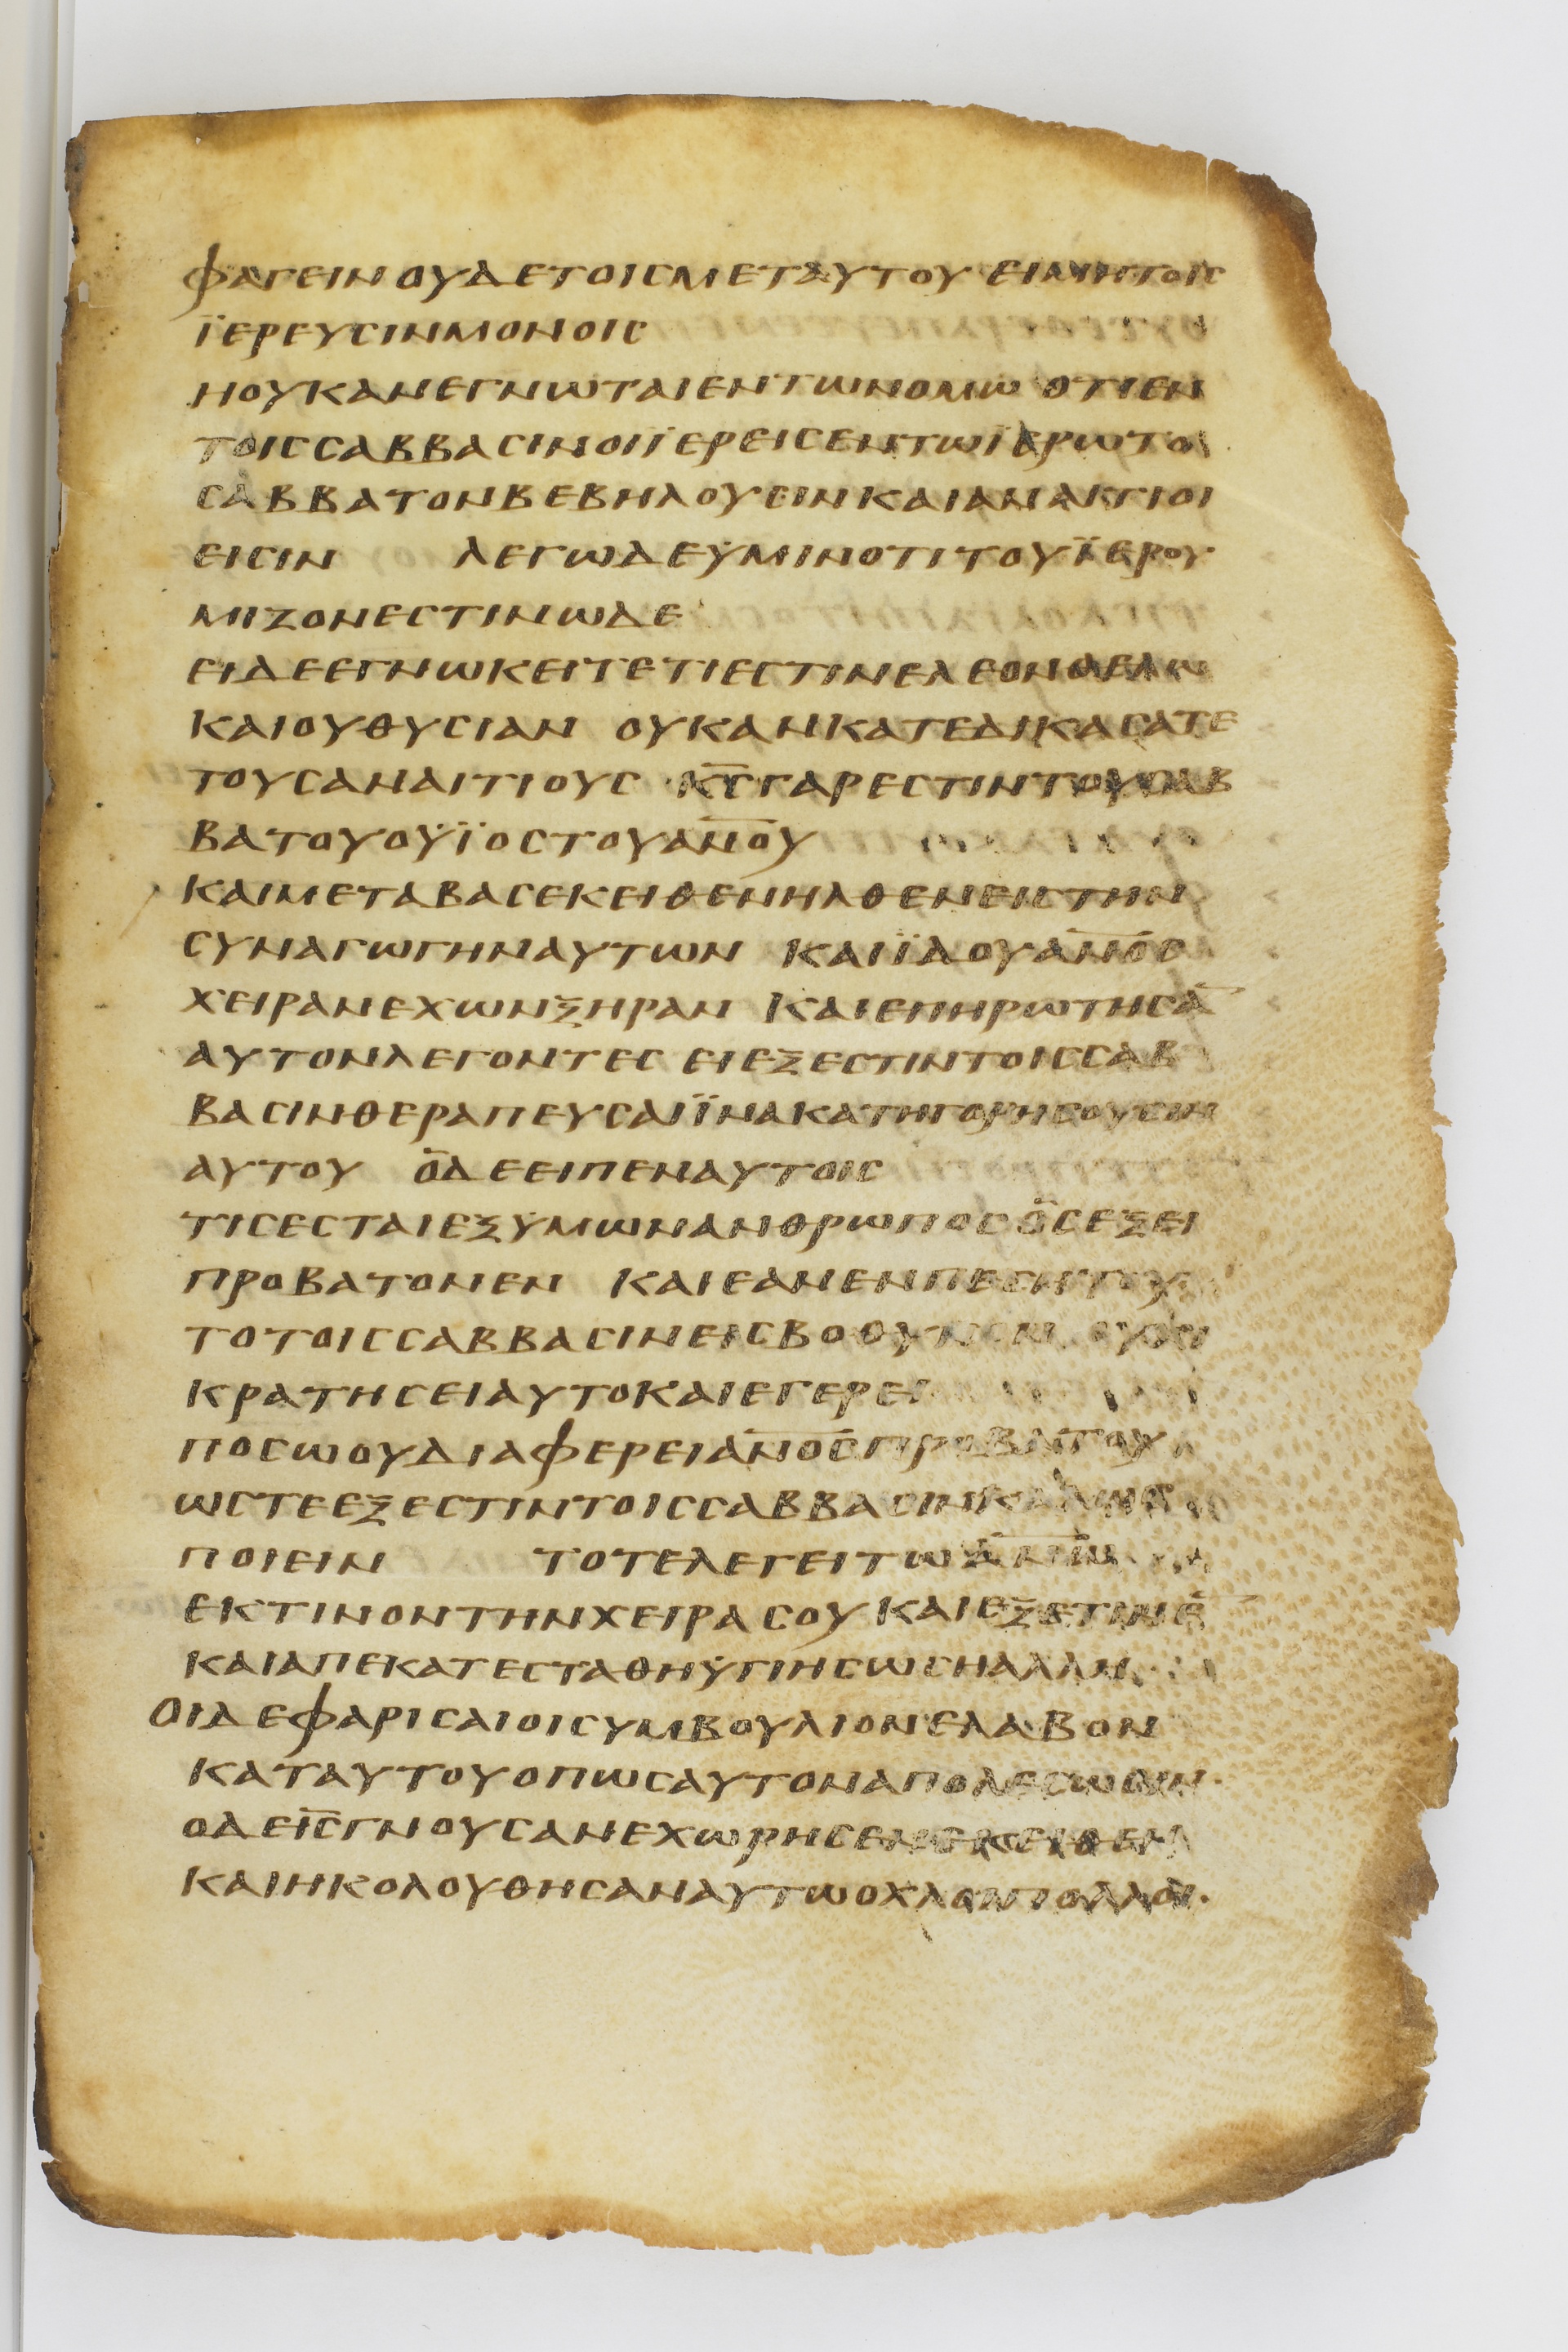 ΦΑΓΕΙΝ ΟΥΔΕΤΟΙCΜΕΤΑΥΤΟΥ ΕΙΜΗΤΟΙC
ΪΕΡΕΥCΙΝΜΟΝΟΙC
ΗΟΥΚΑΝΕΓΝΩΤΑΙΕΝΤΩΝΟΜΩ ΟΤΙΕΝ
ΤΟΙCCΑΒΒΑCΙΝΟΙΪΕΡΕΙCΕΝΤΩΪΕΡΩΤΟ
CΑΒΒΑΤΟΝΒΕΒΗΛΟΥCΙΝΚΑΙΑΝΑΙΤΙΟΙ
ΕΙCΙΝ ΛΕΓΩΔΕΫΜΙΝΟΤΙΤΟΥΪΕΡΟΥ
ΜΙΖΟΝΕCΤΙΝΩΔΕ
ΕΙΔΕΕΓΝΩΚΕΙΤΕΤΙΕCΤΙΝΕΛΕΟΝΘΕΛΩ
ΚΑΙΟΥΘΥCΙΑΝ ΟΥΚΑΝΚΑΤΕΔΙΚΑCΑΤΕ
ΤΟΥCΑΝΑΙΤΙΟΥC Κ̅C̅ΓΑΡΕCΤΙΝΤΟΥCΑΒ
ΒΑΤΟΥΟΫΪΟCΤΟΥΑ̅Ν̅Ο̅Υ̅
ΚΑΙΜΕΤΑΒΑCΕΚΕΙΘΕΝΗΛΘΕΝΕΙCΤΗΝ
CΥΝΑΓΩΓΗΝΑΥΤΩΝ ΚΑΙΪΔΟΥΑ̅Ν̅Ο̅C̅
ΧΕΙΡΑΝΕΧΩΝΞΗΡΑΝ ΚΑΙΕΠΗΡΩΤΗCΑ̅
ΑΥΤΟΝΛΕΓΟΝΤΕC ΕΙΕΞΕCΤΙΝΤΟΙCCΑΒ
ΒΑCΙΝΘΕΡΑΠΕΥCΑΙΪΝΑΚΑΤΗΓΟΡΗCΟΥCΙΝ
ΑΥΤΟΥ ΟΔΕΕΙΠΕΝΑΥΤΟΙC
ΤΙCΕCΤΑΙΕΞΫΜΩΝΑΝΘΡΩΠΟC ΟCΕΞΕΙ
ΠΡΟΒΑΤΟΝΕΝ ΚΑΙΕΑΝΕΝΠΕCΗΤΟΥ
ΤΟΤΟΙCCΑΒΒΑCΙΝΕΙCΒΟΘΥΝΟΝ ΟΥΧΙ
ΚΡΑΤΗCΕΙΑΥΤΟΚΑΙΕΓΕΡΕΙ
ΠΟCΩΟΥΔΙΑΦΕΡΕΙΑ̅Ν̅Ο̅C̅ΠΡΟΒΑΤΟΥ
ΩCΤΕΕΞΕCΤΙΝΤΟΙCCΑΒΒΑCΙΝΚΑΛΩC
ΠΟΙΕΙΝ ΤΟΤΕΛΕΓΕΙΤΩΑ̅Ν̅Ω̅
ΕΚΤΙΝΟΝΤΗΝΧΕΙΡΑCΟΥ ΚΑΙΕΞΕΤΙΝΕ̅
ΚΑΙΑΠΕΚΑΤΕCΤΑΘΗΫΓΙΗCΩCΗΑΛΛΗ
ΟΙΔΕΦΑΡΙCΑΙΟΙCΥΜΒΟΥΛΙΟΝΕΛΑΒΟΝ
ΚΑΤΑΥΤΟΥΟΠΩCΑΥΤΟΝΑΠΟΛΕCΩCΙΝ
ΟΔΕΙ̅C̅ΓΝΟΥCΑΝΕΧΩΡΗCΕΝΕΚΕΙΘΕΝ
ΚΑΙΗΚΟΛΟΥΘΗCΑΝΑΥΤΩΟΧΛΟΙΠΟΛΛΟΙ